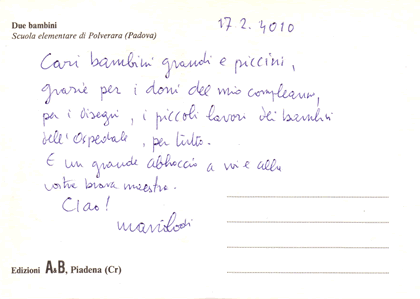 Due bambini
Scuola elementare di Polverara (Padova)
17.2.4010
Cari bambini grandi e piccini,
grazie per i doni del mio compleanno,
per i disegni, i piccoli lavori dei bambini
dell'Ospedale, per tutto.
E un grande abbraccio a voi e alla
vostra brava maestra.
Ciao!
mariolodi
Edizioni A&B, Piadena (Cr)